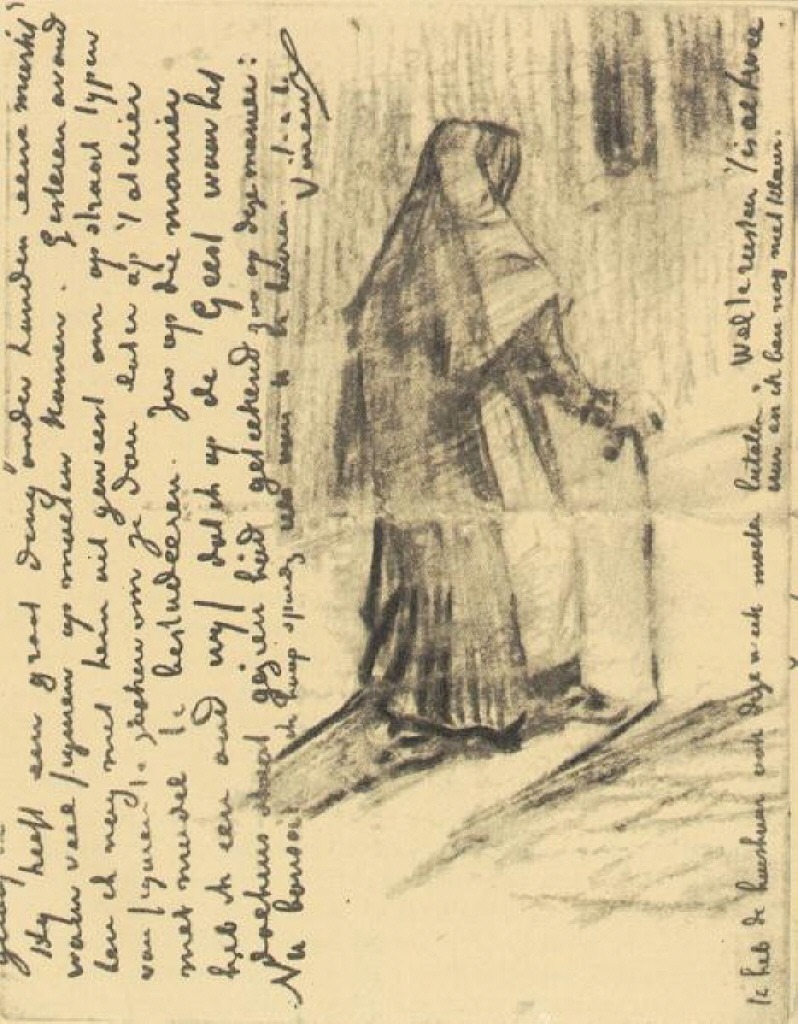 Hy heeft een groot ding onder handen eene markt
waar veel figuren op moeten komen. Gisteren avond
ben ik nog met hem uit geweest om op straat typen
van figuren te zoeken om ze dan later op 't atelier
met model te bestudeeren. Zoo op die manier
heb ik een oud wyf dat ik op de Geest waar het
dolhuis staat gezien heb geteekend zoo op deze manier:
Nu bonsoir ik hoop spoedig eens van U te hooren. t. à t.
Vincent
Ik heb de huishuur ook deze week moeten betalen. Wel te rusten 't is al twee
uur en ik ben nog niet klaar.